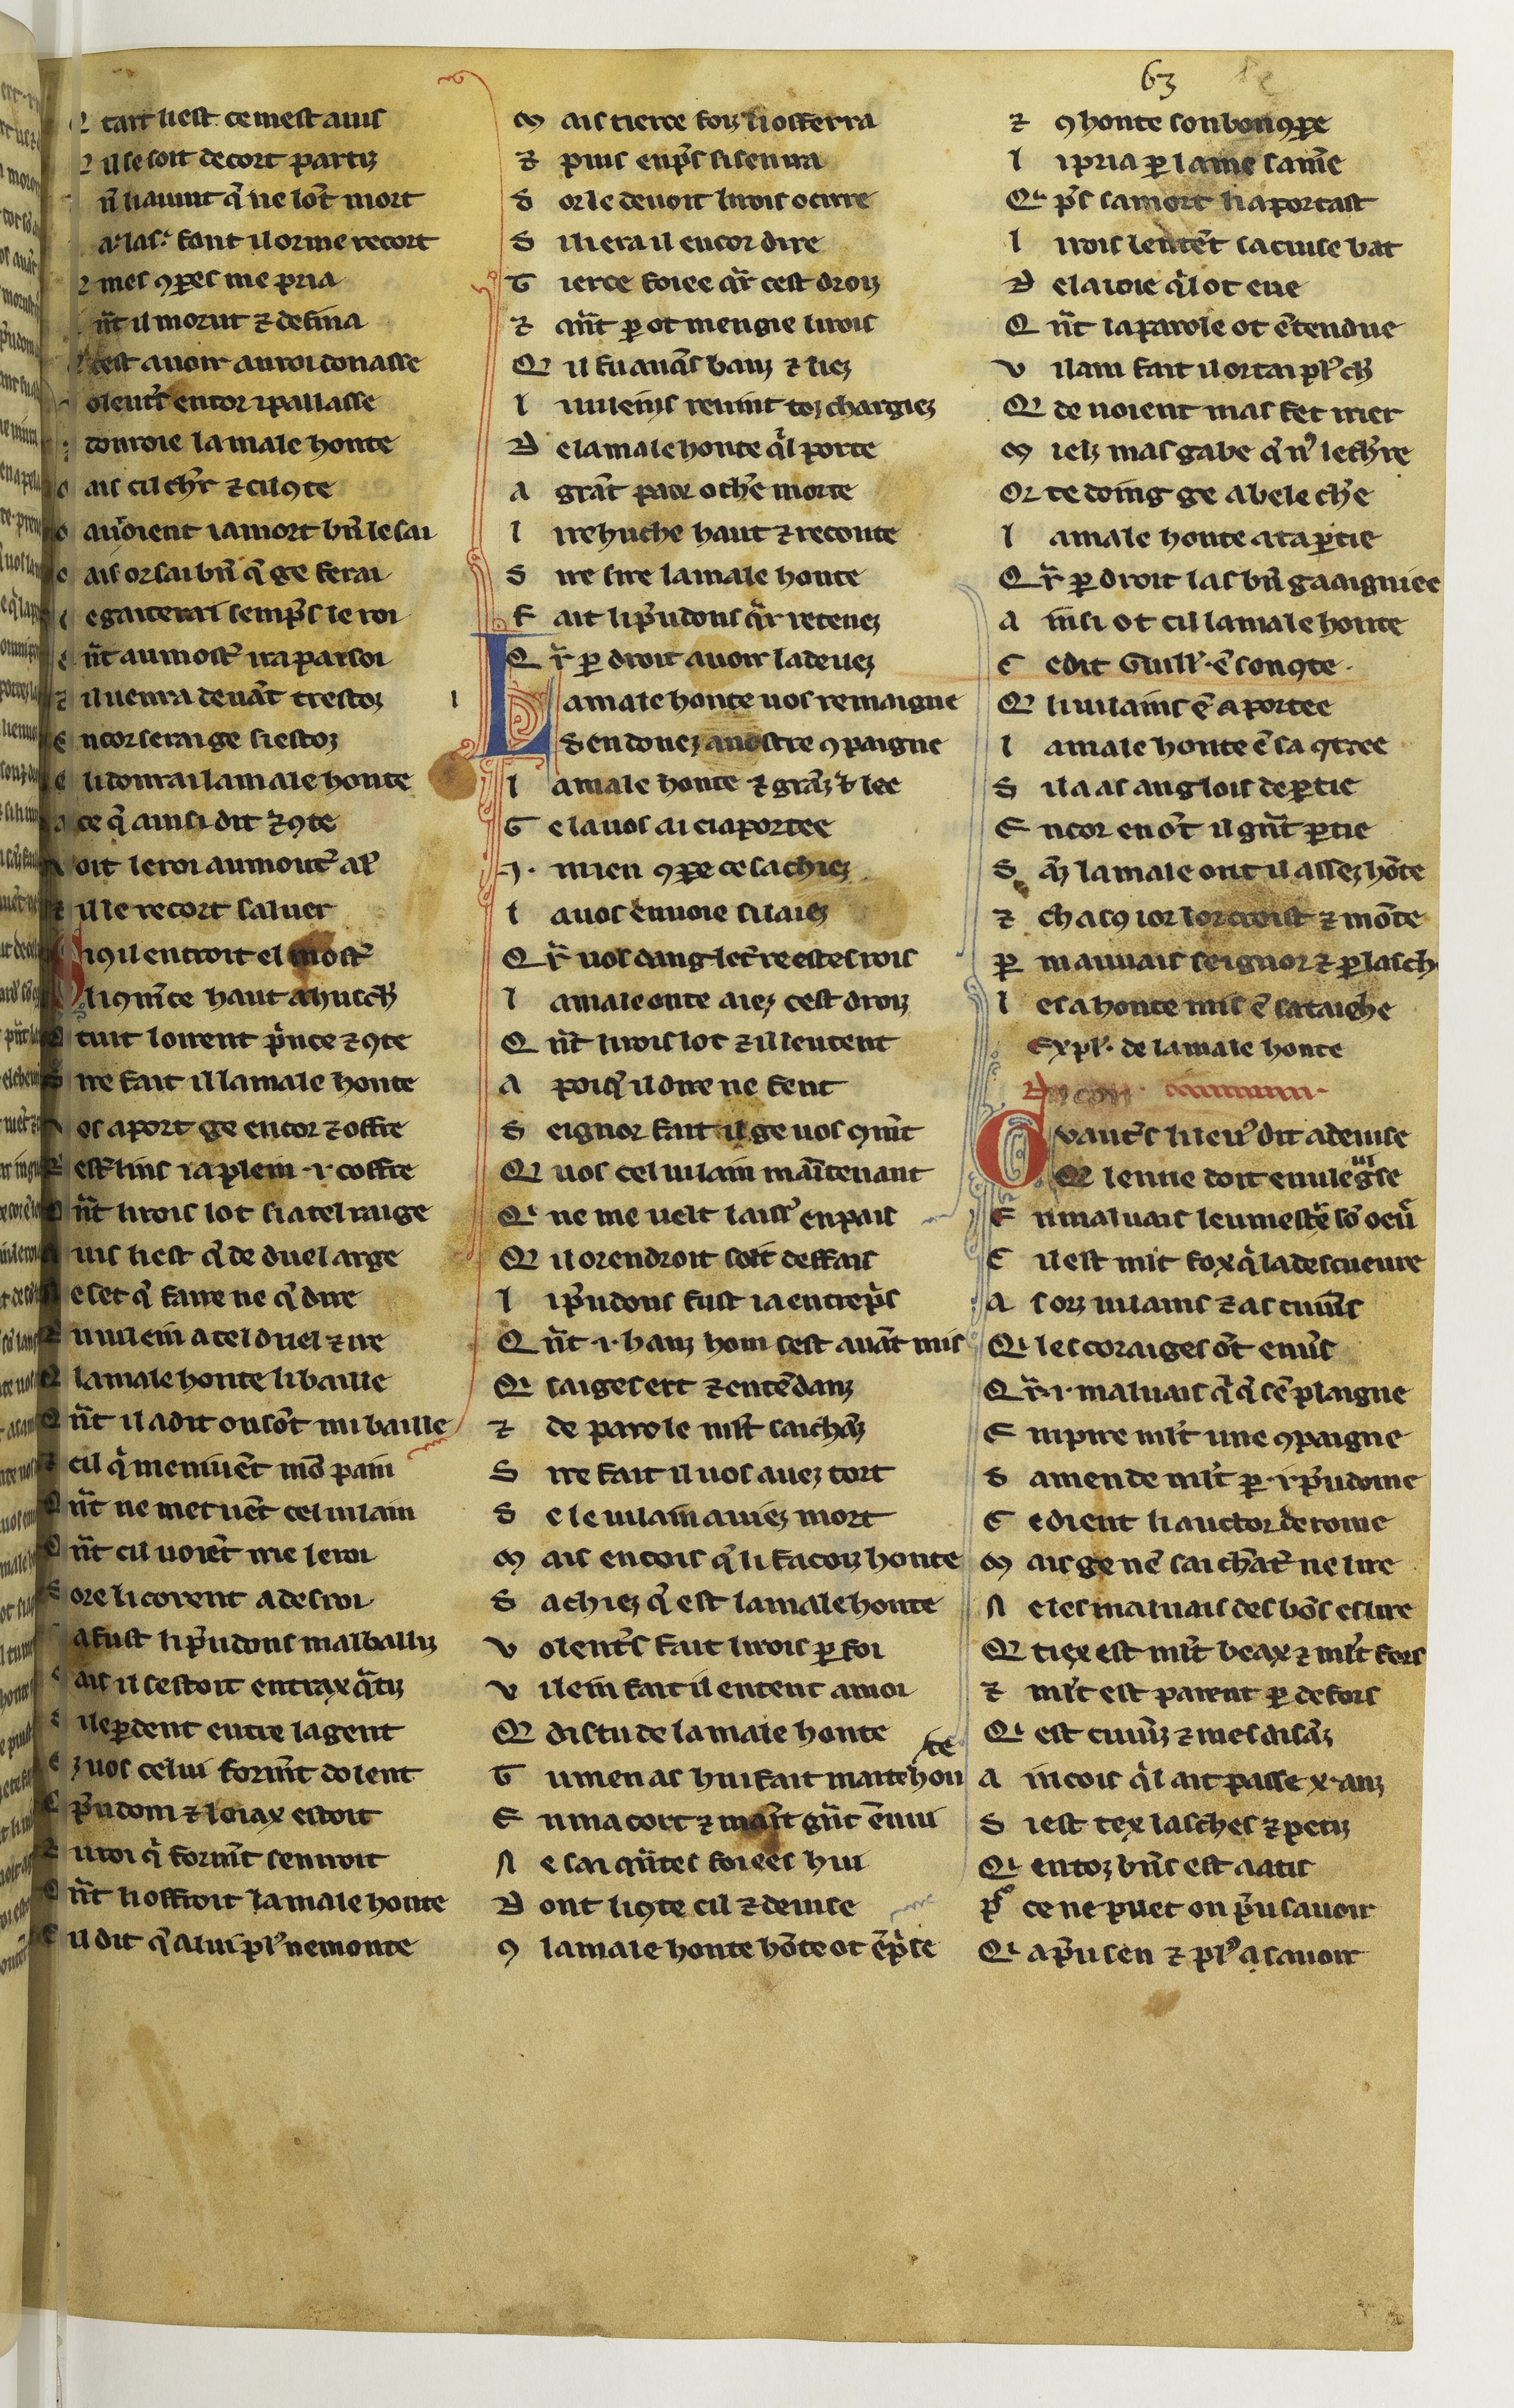 63
tart li est ce mest auis
il se soit de cort partiz
n̄ li auint q̄ ne sōt mort
a· las· fait il or me recort
mes ꝯꝑes me pria
n̄t il morut ⁊ defina
cest auoir au roi donasse
olentˢ encor i parlasse
donroie la male honte
ais cil chr̄ ⁊ cil ꝯte
auroient ia mort bn̄ le sai
ais or sai bn̄ q̄ ge ferai
e gaiterai semp̄s le roi
n̄t au most̄ ira par soi
il uenra deuāt trestoz
ncor serai ge si estoz
li donrai la male honte
ce q̄ ainsi dit ⁊ ꝯte
oit le roi au mout̄ al̓
ille recort saluer
iqil entroit el most̄
li ꝯm̄ce haut a huch̓
tuit loirent p̄nce ⁊ ꝯte
ire fait il la male honte
os aport ge encor ⁊ offre
est̓ lins ia plein ·i· coffre
n̄t li rois lot si a tel raige
uis li est q̄ de duel arge
e set q̄ faire ne q̄ dire
u uilein a tel duel ⁊ ire
la male honte li baille
n̄t il a dit ou sōt mi baille
cil q̄ meniuēt mō pain
n̄t ne me tuēt cel uilain
n̄t cil uoiēt irie le roi
ore li corent a desroi
a fust li p̄udons malbailliz
ais il sestoit entrax q̄tiz
ile ꝑdent entre la gent
z uos celui form̄t dolent
p̄udom ⁊ loiax estoit
u roi q̄ form̄t senuoit
n̄t li offroit la male honte
il dit q̄ a lui plꝰ ne monte
M ais tierce foiz li offerra
⁊ puis enp̄s si sen ira
S or le deuoit li rois ocirre
S i li era il encor dire
T ierce foiee q̄r cest droiz
⁊ qn̄t ꝑ ot mengie li rois
Q il fu auāts bauz ⁊ liez
L i uileins reuint toz chargiez
D e la male honte q̄l porte
A grāt paor och̄e morte
L i rehuche haut ⁊ reconte
S ire sire la male honte
F ait li p̄udons q̄r retenez
Q r̄ ꝑ droit auoir la deuez
L a male honte uos remaigne
S en donez a uostre ꝯpaigne
L a male honte ⁊ grāz ⁊ lee
G e la uos ai ci aportee
·I· mien ꝯꝑe ce sachiez
L a uos enuoie si laiez
Q r̄ uos dangletˀre estes rois
L a male onte aiez cest droiz
Q n̄t li rois lot ⁊ il lentent
A poi q̄ il dire ne fent
S eignor fait il ge uos ꝯmt
Q uos cel uilain māītenant
Q i ne me uelt laisˀ en pais
Q il orendroit soit deffais
L i p̄udons fust ia entrep̄s
Q n̄t ·i· hauz hom sest auāt mis
Q i saiges ert ⁊ entēdanz
⁊ de parole ml̄t saichāz
S ire fait il uos auez tort
S e le uilain auiez mort
M ais encois q̄ li facoiz honte
S achiez q̄ est la male honte
V olentˢ fait li rois ꝑ foi
V ilein fait il entent a moi
Q dis tu de la male honte
T u men as hui fait mainte honte
E n ma cort ⁊ māīt gn̄t ēnui
N e sai qn̄tes foiees hui
D ont li ꝯte cil ⁊ deuise
ꝯ la male honte hōte ot ēp̄se
⁊ ꝯ honte son bon ꝯꝑe
L i pria ꝑ lame sam̄e
Q i p̄s sa mort li aportast
L i rois lentēt sa cuise bat
D e la ioie q̄l ot eue
Q n̄t la parole ot ētendue
V ilain fait il or tai plꝰ ch̓
Q de noient mas fet irier
M ielz mas gabe q̄ nꝰ lech̄re
Or te doing ge a bele ch̄e
L a male honte a ta ꝑtie
Q r̄ ꝑ droit las bn̄ gaaigniee
A insi ot cil la male honte
C e dit Guillˀ· ē son ꝯte·
Q li uilains ē aportee
L a male honte ē sa ꝯtree
S i la as anglois deꝑtie
E ncor en ōt il gn̄t ꝑtie
S āz la male ont il assez hōte
⁊ chascꝯ ior lor croist ⁊ mōte
ꝑ mauuais seignor ⁊ ꝑ lasch
L es a honte mis ē sa taiche
Explˀ· de la male honte
G vautˢ li leuˀ dit a deuise
Q lenne doit en nule guise
E n maluais leu mestˀe sō oeu̓
C il est ml̄t fox q̄ la descueure
A sorz uilains ⁊ as cuiūs
Q i les coraiges ōt enūs
Q r̄ ·i· maluais q̄ q̄ sē plaigne
E mpire ml̄t une ꝯpaigne
S amende ml̄t ꝑ ·i· p̄udome
C e dient li auctor de rome
M ais ge nē sai chātˀ ne lire
N e les maluais des bōs eslire
Q tiex est ml̄t beax ⁊ ml̄t fors
⁊ ml̄t est parent ꝑ defors
Q i est cuiūz ⁊ mesdisāz
A incois q̄l ait passe x· anz
S i est tex lasches ⁊ petiz
Q i en toz bn̄s est aatis
pˀo ce ne puet on p̄u sauoir
Q i a p̄u sen ⁊ plꝰ a sauoir